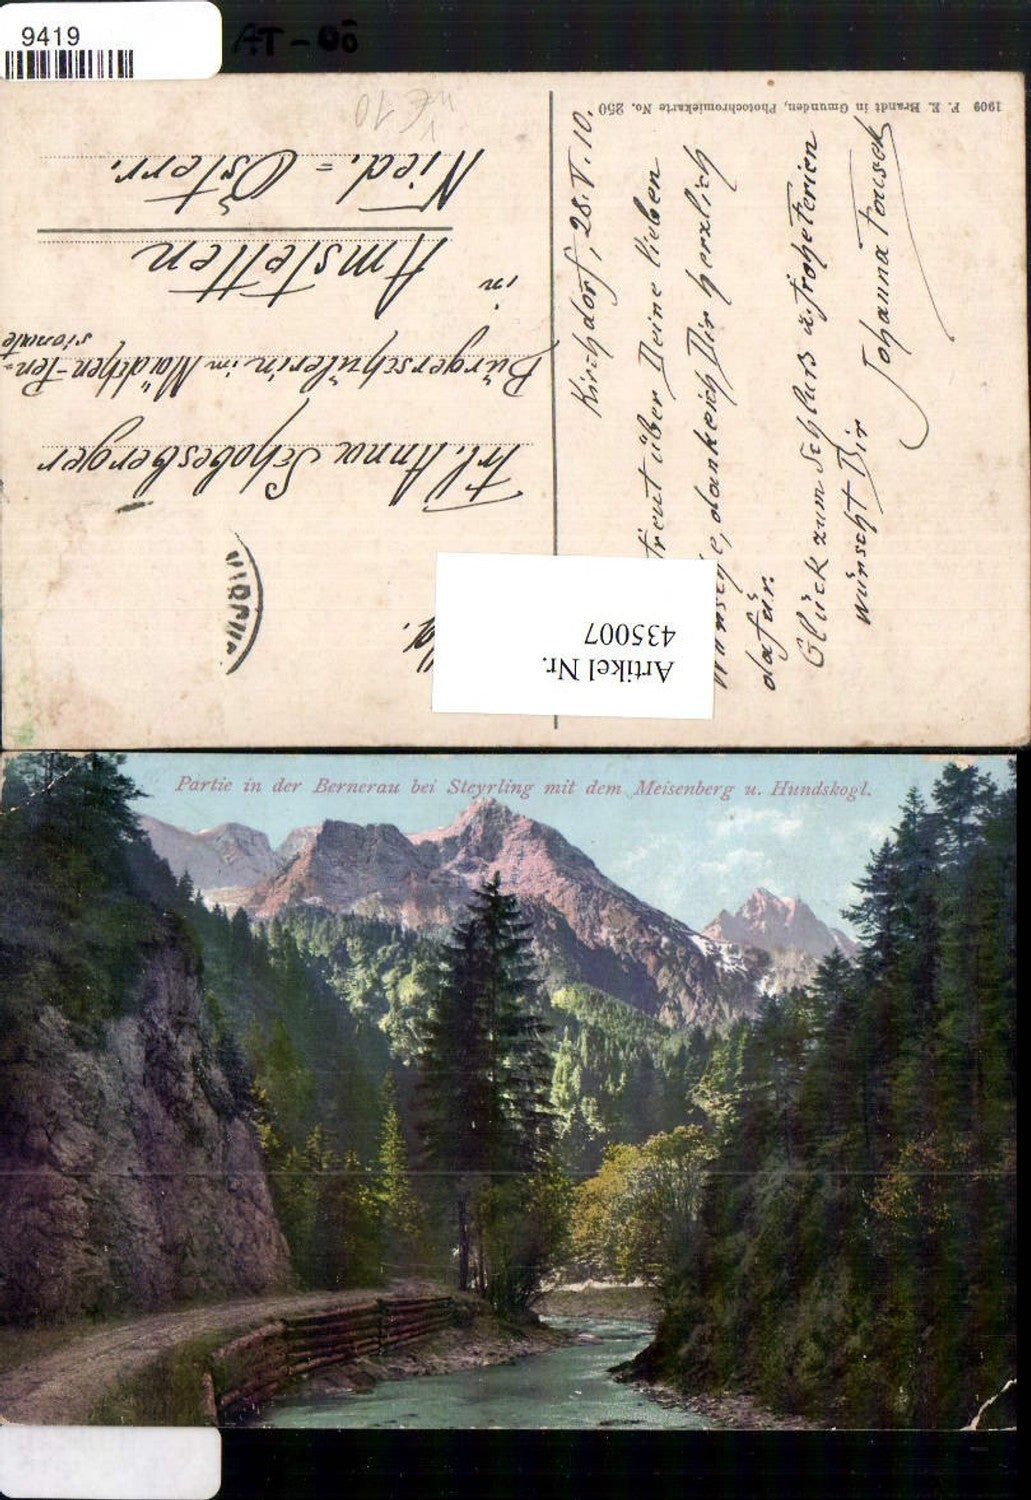 9419
AT-OÖ
1909 F. E. Brandt in Gmunden, Photochromiekarte No. 250
Kirchdorf, 28. V. 10.
freut über Deine lieben
Wünsche, danke ich Dir herzlich
dafür.
Glück zum Schluß u. frohe Ferien
wünscht Dir
Johanna
Frl. Anna Schobesberger
Bürgerschülerin im Mädchen-Pen=
sionate
in
Amstetten
Nied. = Österr.
Artikel Nr.
435007
Partie in der Bernerau bei Steyrling mit dem Meisenberg u. Hundskogl.